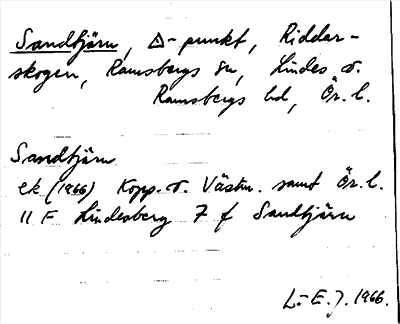 Sandtjärn, △-punkt, Riddar-
skogen, Ramsbergs sn, Lindes o.
Ramsbergs hd, Ör. l.
Sandtjärn
ek (1966) Kopp. o. Västm. samt Ör. l.
11 F Lindesberg 7 f Sandtjärn
L.-E. J. 1966.